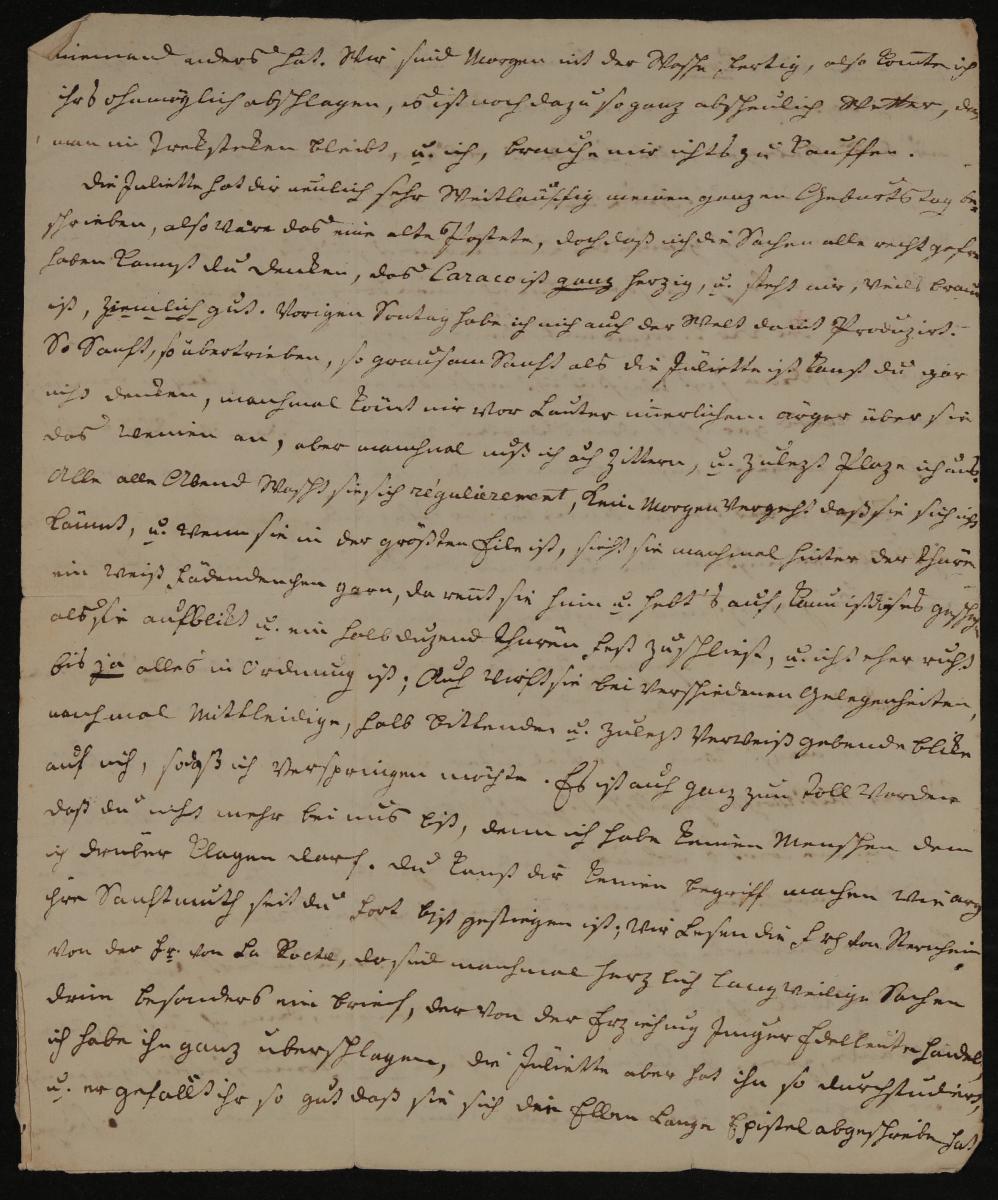 niemand anders hat. Wir sind Morgen mit der Wasche fertig, also konnte ich
ihrs ohnmöglich abschlagen, es ist noch dazu so ganz abscheulich Wetter, daß
man im Dreksteken bleibt, u. ich, brauche mir nichts zu kauffen.
die Juliette hat dir neulich sehr Weitläuffig meinen ganzen Geburtstag be
schrieben, also wäre das eine alte Pastete, doch daß mich die Sachen alle recht gefreu
haben kanst du denken, das Caraco ist ganz herzig, u. steht mir, weils braun
ist, ziemlich gut. Vorigen Sontag habe ich mich auch der Welt damit Produzirt.
So Sanft, so übertrieben, so grausam Sanft als die Juliette ist kanst du gar
nicht denken, manchmal kömt mir vor Lauter innerlichem ärger über sie
das weinen an, aber manchmal muß ich auch Zittern, u. zulezt Plaze ich aus.
Alle alle Abend Wascht sie sich régulierement, kein Morgen Vergeht daß sie sich nicht
kämmt, u. wenn sie in der größten Eile ist, sieht sie manchmal hinter der thüre
ein weiß garn, da rennt sie hin u. hebt's auf, kaum ist dieses gescheh
als sie aufblikt u. ein halb duzend thüren fest zuschliest, u. nicht eher ruht
bis ja alles in Ordnung ist; Auch wirft sie bei Verschiedenen Gelegenheiten,
manchmal Mittleidige, halb bittende u. zulezt Verweiß gebende blike
auf mich, sodaß ich Verspringen möchte. Es ist auch ganz zum toll Werden
daß du nicht mehr bei uns bist, denn ich habe keinen Menschen dem
ich drüber klagen darf. du kanst dir keinen begriff machen wie arg
ihre Sanftmuth seit du fort bist gestiegen ist; Wir Lesen die Frl von Sternheim
von der Fr. von La Roche, da sind manchmal herzlich langweilige Sachen
drin besonders ein brief, der von der Erziehung Junger Edelleute handelt,
ich habe ihn ganz überschlagen, die Juliette aber hat ihn so durchstudiert,
u. er gefällt ihr so gut daß sie sich die Ellen Lange Epistel abgeschrieben hat